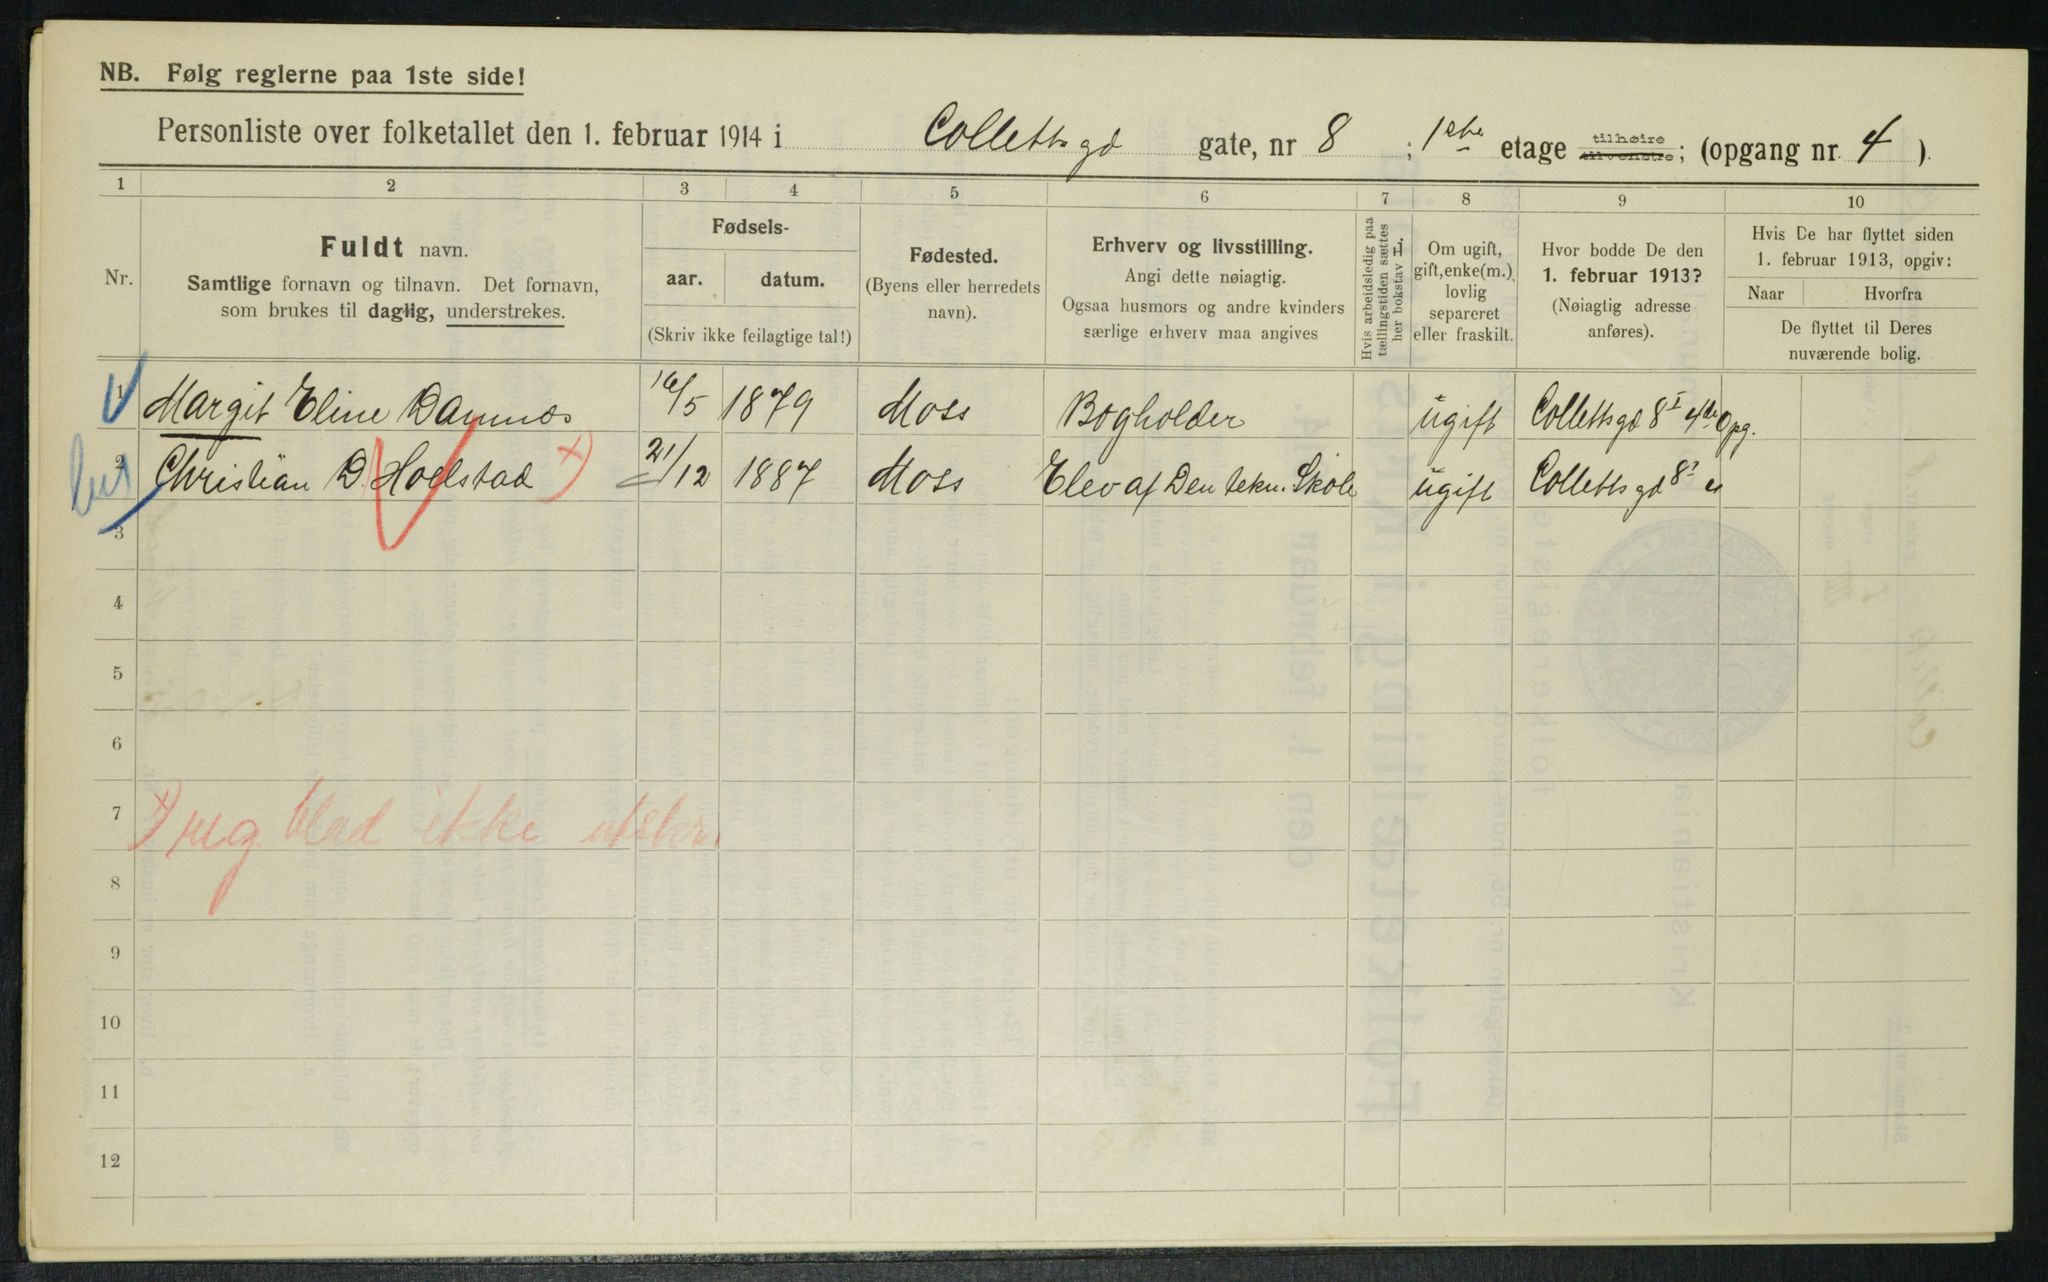 NB. Følg reglerne paa 1ste side!
Personliste over folketallet den 1. februar 1914 i Collettsgd gate, nr 8 ; 1ste etage tilhøire tilvenstre; (opgang nr. 4 ).
1 2 3 4 5 6 7 8 9 10
Nr.
Fuldt navn.
Samtlige fornavn og tilnavn. Det fornavn,
som brukes til daglig, understrekes.
Fødsels-
aar. datum.
(Skriv ikke feilagtige tal!)
Fødested.
(Byens eller herredets
navn).
Erhverv og livsstilling.
Angi dette nøiagtig.
Ogsaa husmors og andre kvinders
særlige erhverv maa angives
Hvis arbeidsledig paa
tællingstiden sættes
her bokstav L.
Om ugift,
gift, enke(m.),
lovlig
separeret
eller fraskilt.
Hvor bodde De den
1. februar 1913?
(Nøiagtig adresse
anføres).
Hvis De har flyttet siden
1. februar 1913, opgiv:
Naar Hvorfra
De flyttet til Deres
nuværende bolig.
1 Margit Eline 16/5 1879 Moss Bogholder ugift Collettsgd 8 I 4de Opg.
2 Christian D. Hoelstad x) 21/12 1887 Moss Elev af Den tekn. Skole ugift Collettsgd 8 I
3
4
5
6
7
x) reg. blad ikke
8
9
10
11
12